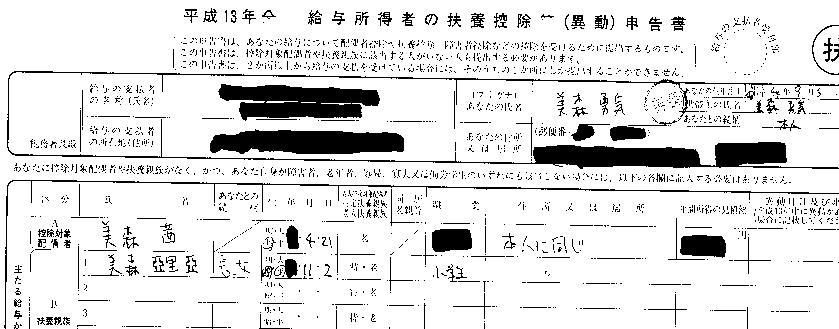 平成13年分 給与所得者の扶養控除等(異動)申告書
この申告書は、あなたの給与について配偶者控除や扶養控除、障害者控除などの控除を受けるために提出するものです。
この申告書は、控除対象配偶者や扶養親族に該当する人がいない人も提出する必要があります。
この申告書は、2か所以上から給与の支払を受けている場合には、そのうちの1か所にしか提出することができません。
給与の支払者受付印
扶
給与の支払者の名称(氏名)
(フリガナ)
あなたの氏名
美森 勇気
あなたの生年月日
世帯主の氏名
美森 勇気
あなたとの続柄
本人
税務署長殿
給与の支払者の所在地(住所)
あなたの住所又は居所
(郵便番
あなたに控除対象配偶者や扶養親族がなく、かつ、あなた自身が障害者、老年者、寡婦、寡夫又は勤労学生のいずれにも該当しない場合には、以下の各欄に記入する必要はありません。
区分
氏 名
あなたとの続柄
生年月日
職業
住所又は居所
平成13年中に異動が
控除対象配偶者
A
美森 茜
4・21
本人に同じ
円
主たる給与か
1
美森 亞里亞
長女
11・2
小学生
〃
2
B
扶養親族
3